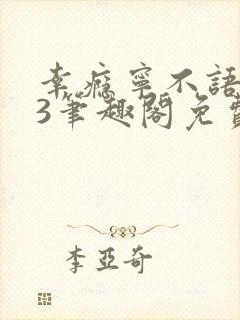 幸瘾寧不語
3筆趣閣免費
李亞奇